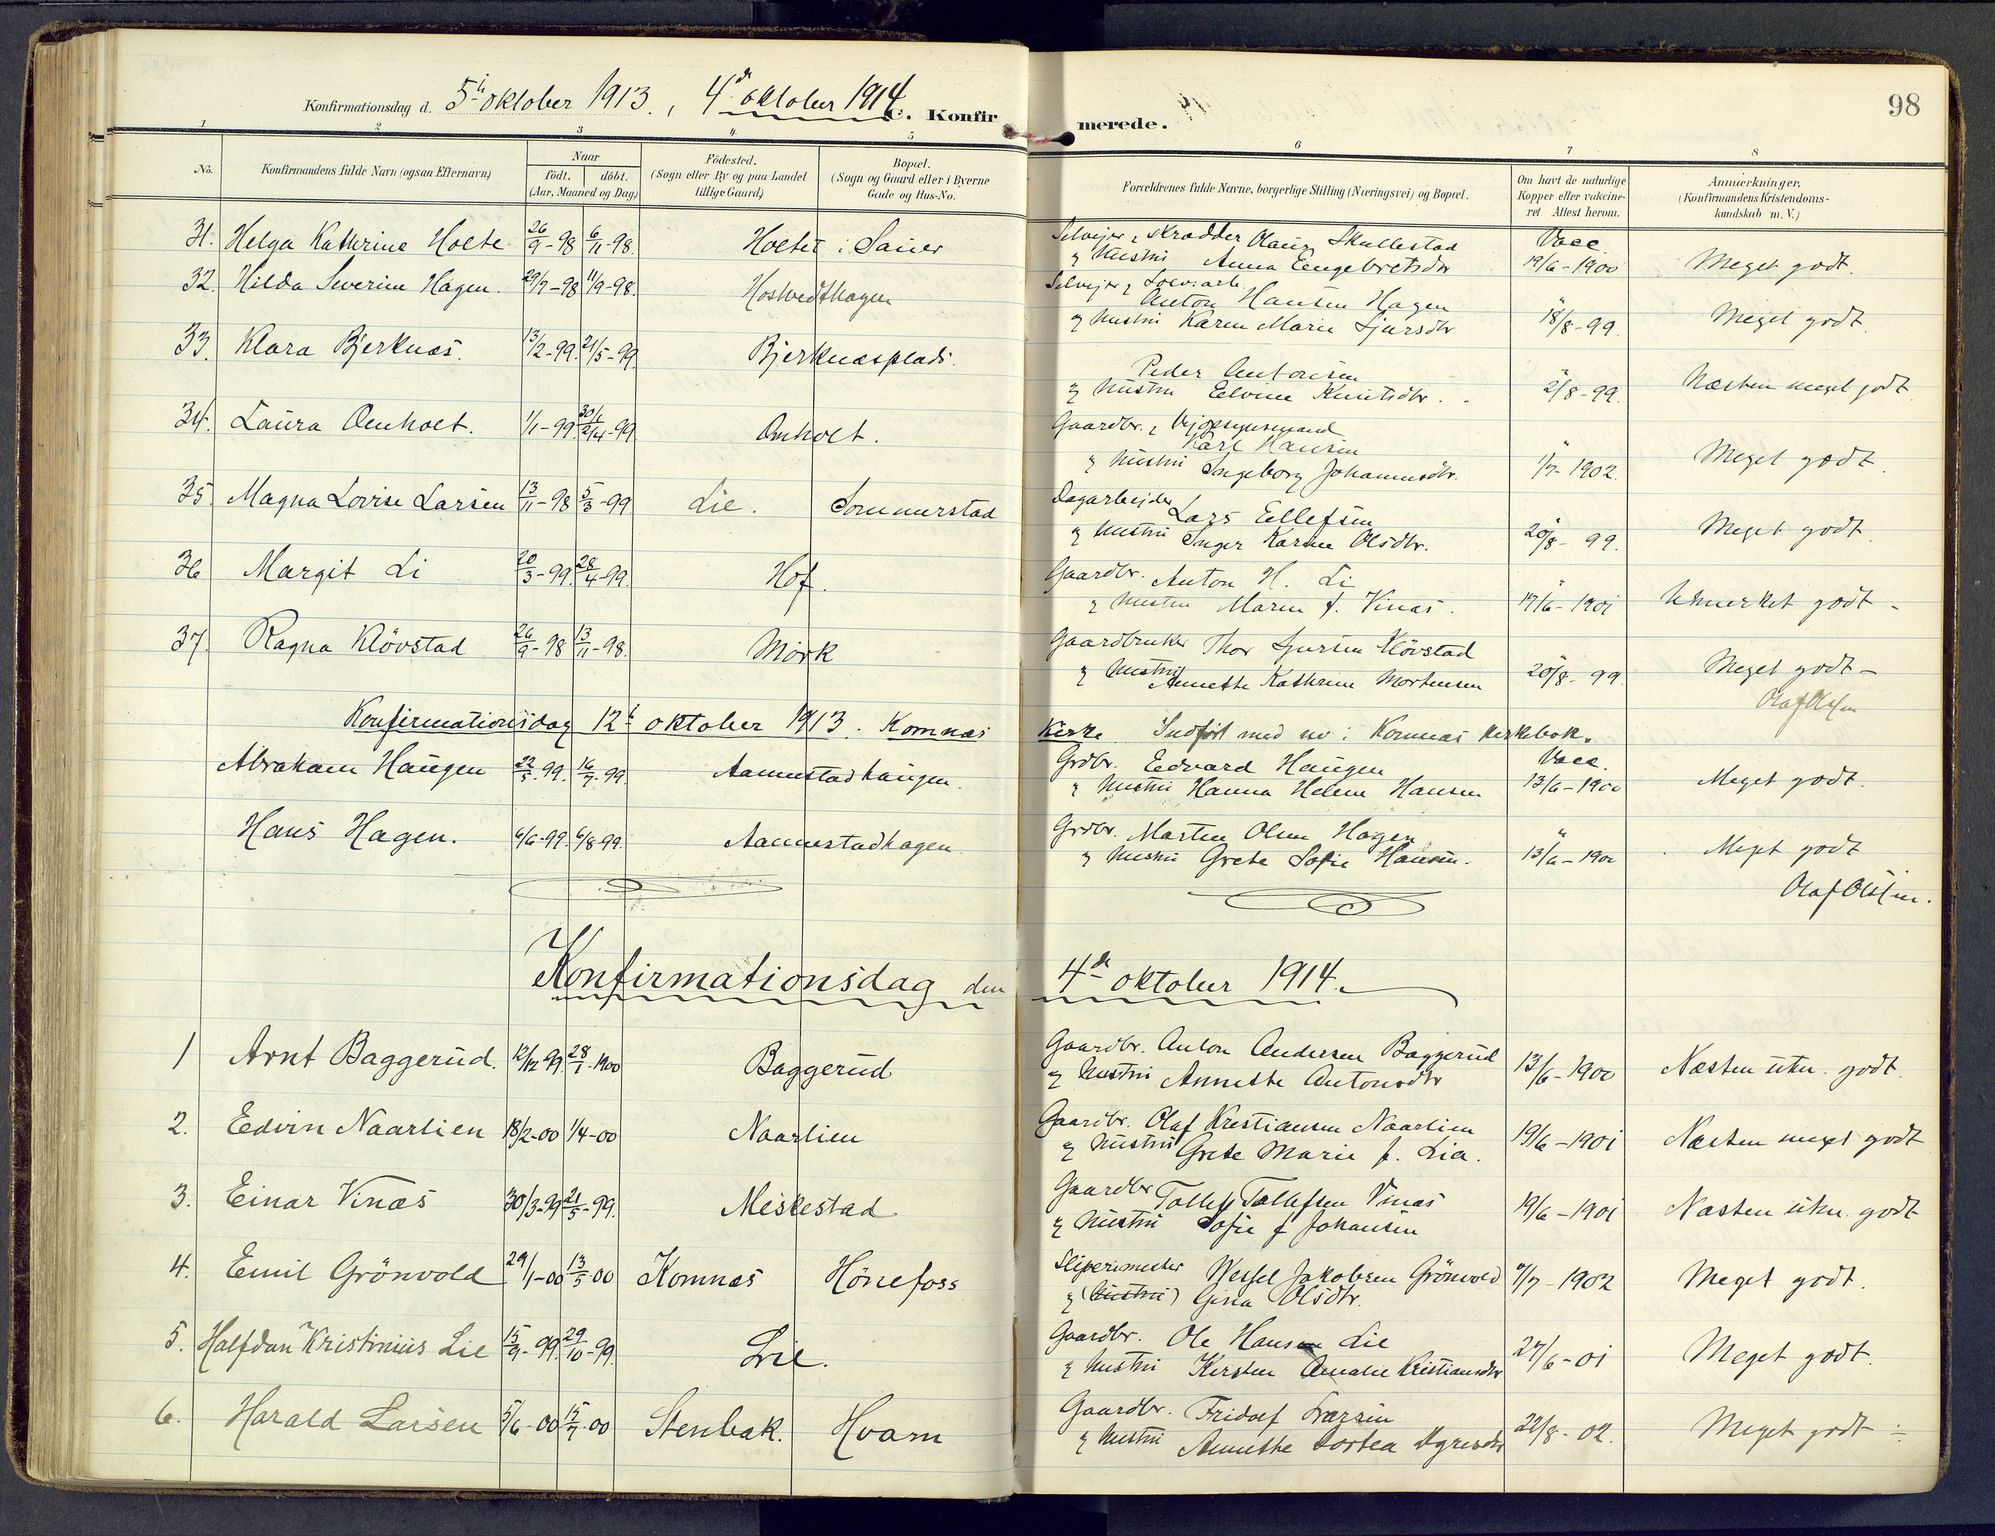 Konfirmationsdag d. 5te oktober 1913, 4de oktober 1914 C. Konfirmerede. 98
1 2 3 4 5 6 7 8
No. Konfirmandens fulde Navn (ogsaa Efternavn) Naar födt. döbt. (Aar, Maaned og Dag) Födested. (Sogn eller By og paa Landet tillige Gaard) Bopæl. (Sogn og Gaard eller i Byerne Gade og Hus-No. Forældrenes fulde Navne, borgerlige Stilling (Næringsvei) og Bopæl. Om havt de naturlige Kopper eller vakcineret Attest herom. Anmærkninger. (Konfirmandens Kristendomskundskab m. V.)
31. Helga Kathrine Holte 26/9-98 6/11-98. Holtet i Sauer Selvejer, skrædder Olaus Skullestad Vacc. 19/6-1900 Meget godt.
og hustru Anna Engebretsdtr
32. Hilda Severine Hagen. 29/7-98 11/9-98. Hostvedthagen Selveier
Anton Hansen Hagen 18/8-99. Meget godt.
og hustru Karen Marie Sjursdtr
33. Klara Bjerknæs. 13/2-99. 21/5-99 Bjerknæsplads. Peder Antonsen " 2/8-99. Næsten meget godt.
og hustru Elvine Knutsdtr.
34. Laura Omholt. 1/1-99. 30/1 2/4-99 Omholt. Gaardbr.
Karl Hansen " 1/7-1902. Meget godt.
og hustru Ingeborg Johannesdtr.
35. Magna Lovise Larsen 13/11-98 5/3-99 Lie. Sommerstad Dagarbejder
Lars Ellefsen 20/8-99. Meget godt.
og hustru Inger Karine Olsdtr.
36 Margit Li 20/3-99. 28/4-99. Hof. Gaardbr. Anton H. Li 19/6-1901 Udmerket godt -
og hustru Maren f. Vinæs.
37. Ragna Klövstad 26/9-98 13/11-98. Mörk Gaardbruker Thor Sjursen Klövstad 20/8-99. Meget godt -
og hustru Annette Kathrine Mortensen Olaf Olsen
Konfirmationsdag 12te oktober 1913. Komnæs Kirke Indført med no i Komnæs kirkebok.
Abraham Haugen 22/5-99. 16/7-99. Aannestadhaugen. Grdbr. Edvard Haugen Vacc. 13/6-1900 Meget godt.
og hustru Hanna Helene Hansen
Hans Hagen. 6/6-99. 6/8-99. Aannestadhagen Grdbr. Martin Olsen Hagen " 13/6-1900 Meget godt
og hustru Grete Sofie Hansen. Olaf Olsen.
Konfirmationsdag den 4de oktober 1914.
1 Arnt Baggerud. 12/12 99. 28/1-1900 Baggerud Gaardbr. Anton Andersen Baggerud 13/6-1900 Næsten utm. godt.
og hustru Annette Antonsdtr
2. Edvin Naarlien 18/2-00 1/4-00 Naarlien Gaardbr. Olaf Kristiansen Naarlien 19/6-1901 Næsten meget godt
og hustru Grete Marie f. Lia.
3. Einar Vinæs 30/3-99 21/5-99. Meskestad Gaardbr Tollef Tollefsen Vinæs 19/6-1901 Næsten utm. godt
og hustru Sofie f Johansen
4. Emil Grönvold 29/1-00 13/5-00 Komnæs Hönefoss Sliperimester Wessel Jakobsen Grönvold 9/7-1902 Meget godt.
og (hustru) Gina Olsdtr.
5. Halfdan Kristinius Lie 15/9-99. 29/10-99. Lie. Gaardbr. Ole Hansen Lie 27/6-01 Meget godt.
og hustru Kirsten Amalie Kristiansdtr
6. Harald Larsen 5/6-00 15/7-00 Stenbak. Hvam Gaardbr. Fridolf Larsen 22/8-02. Meget godt -
og hustru Annette Dortea